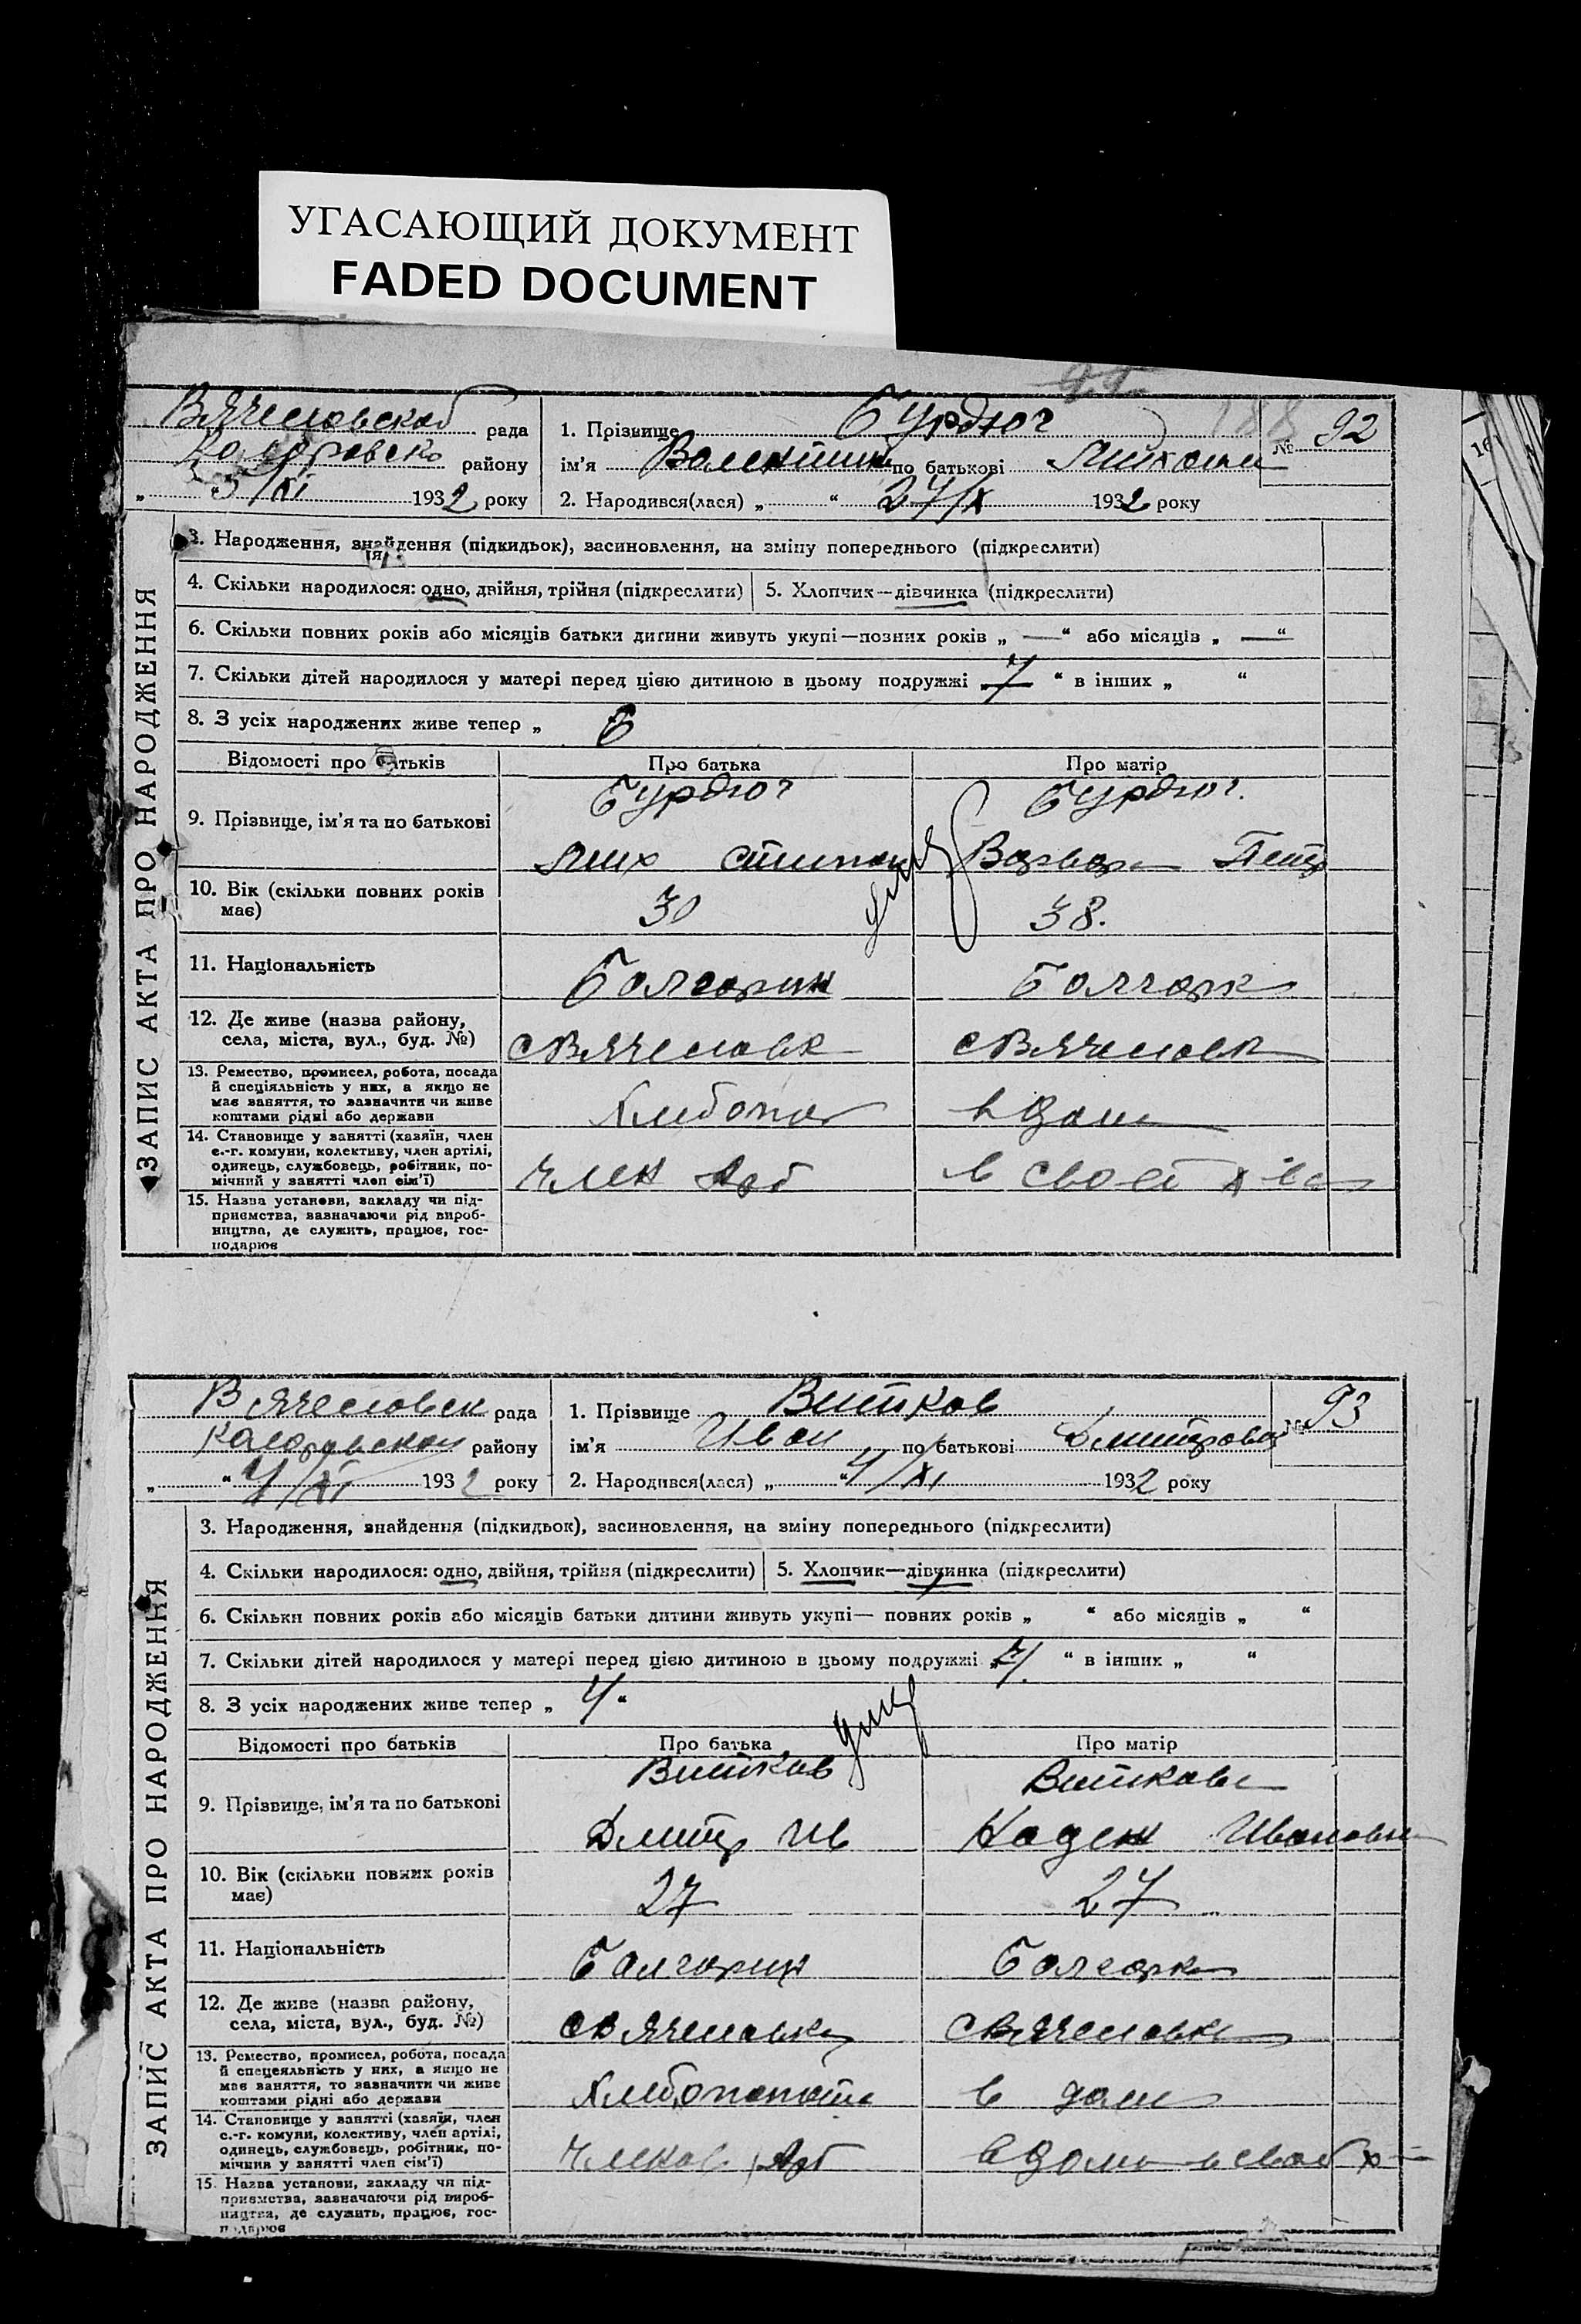 УГАСАЮЩИЙ ДОКУМЕНТ
FADED DOCUMENT
Вячеславской рада
району
5/XI 1932 року
1. Прізвище Бурдюг
ім'я по батькові
2. Народився(лася) „ “ 27/X 1932 року
№ 92
188
ЗАПИС АКТА ПРО НАРОДЖЕННЯ
3. Народження, знайдення (підкидьок), засиновлення, на зміну попереднього (підкреслити)
4. Скільки народилося: одно, двійня, трійня (підкреслити) 5. Хлопчик—дівчинка (підкреслити)
6. Скільки повних років або місяців батьки дитини живуть укупі—повних років „ — “ або місяців „ — “
7. Скільки дітей народилося у матері перед цією дитиною в цьому подружжі „ 7 “ в інших „ “
8. З усіх народжених живе тепер „ 6
Відомості про батьків Про батька Про матір
9. Прізвище, ім'я та по батькові
Бурдюг Бурдюг.
Мих Степан Варвара Петр
10. Вік (скільки повних років має) 30 38.
11. Національність Болгарин Болгарк
12. Де живе (назва району, села, міста, вул., буд. №) с Вячеславк с Вячеславк
13. Ремество, промисел, робота, посада
й спеціяльність у них, а якщо не
має заняття, то зазначити чи живе
коштами рідні або держави
Хлебопаш в доме
14. Становище у занятті (хазяїн, член
с.-г. комуни, колективу, член артілі,
одинець, службовець, робітник, по-
мічний у занятті член сім'ї)
член Арт в своей х-ве
15. Назва установи, закладу чи під-
приємства, зазначаючи рід вироб-
ництва, де служить, працює, гос-
подарює
Вячеславск рада
району
1932 року
1. Прізвище Витков
ім'я Иван по батькові Дмитрович
2. Народився(лася) „ “ 4/XI 1932 року
№ 93
ЗАПИС АКТА ПРО НАРОДЖЕННЯ
3. Народження, знайдення (підкидьок), засиновлення, на зміну попереднього (підкреслити)
4. Скільки народилося: одно, двійня, трійня (підкреслити) 5. Хлопчик—дівчинка (підкреслити)
6. Скільки повних років або місяців батьки дитини живуть укупі— повних років „ “ або місяців „ “
7. Скільки дітей народилося у матері перед цією дитиною в цьому подружжі „ “ в інших „ “
8. З усіх народжених живе тепер „ 4“
Відомості про батьків Про батька Про матір
9. Прізвище, ім'я та по батькові
Витков Виткова
Дмитр Ив Надеж Ивановн
10. Вік (скільки повних років має) 27 27
11. Національність Болгарин Болгарка
12. Де живе (назва району, села, міста, вул., буд. №) с Вячеславка с Вячеславка
13. Ремество, промисел, робота, посада
й спецеяльність у них, а якщо не
має заняття, то зазначити чи живе
коштами рідні або держави
в доме
14. Становище у занятті (хазяїн, член
с.-г. комуни, колективу, член артілі,
одинець, службовець, робітник, по-
мічник у занятті член сім'ї)
Арт в доме в своей х-
15. Назва установи, закладу чи під-
приємства, зазначаючи рід вироб-
ництва, де служить, працює, гос-
подарює